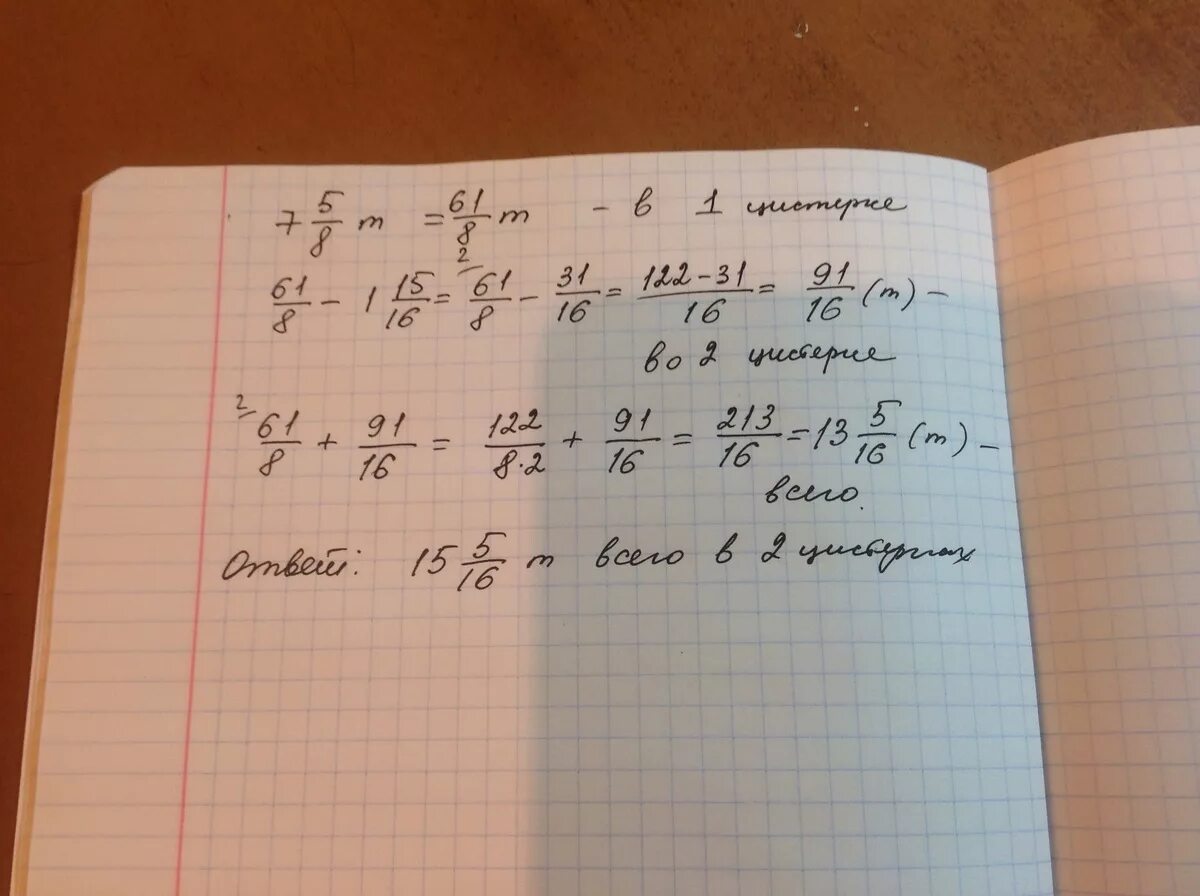 7 5/8 т = 61/8 т - в 1 цистерне
61/8 - 1 15/16 = ²61/8 - 31/16 = 122-31/16 = 91/16 (т) -
во 2 цистерне
²61/8 + 91/16 = 122/8·2 + 91/16 = 213/16 = 13 5/16 (т) -
всего.
Ответ: 15 5/16 т всего в 2 цистернах